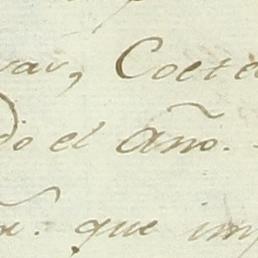 var, Coete
do el Año.
que im